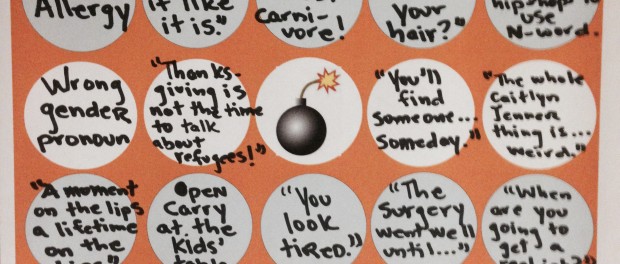 Allergy
it like
it is."
carni-
vore!
Your
hair?"
use
N-word.
Wrong
gender
pronoun
"Thanks-
giving is
not the time
to talk
about
refugees!"
"You'll
find
someone...
Someday."
"The whole
Caitlyn
Jenner
thing is...
weird."
"A moment
on the lips
a lifetime
on the
OPEN
Carry
at the
Kids'
table
"You
look
tired."
"The
Surgery
went well
until..."
"When
are you
going to
get a